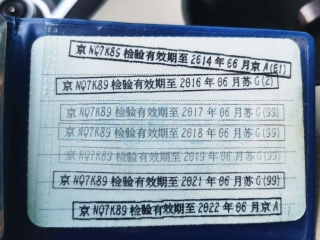 京NQ7K89 检验有效期至2014年06月京A(61)
京NQ7K89 检验有效期至2016年06月苏G(2)
京NQ7K89 检验有效期至2017年06月苏G(99)
京NQ7K89 检验有效期至2018年06月苏G(99)
京NQ7K89 检验有效期至2019年06月苏G(99)
京NQ7K89 检验有效期至2021年06月苏G(99)
京NQ7K89 检验有效期至2022年06月京A